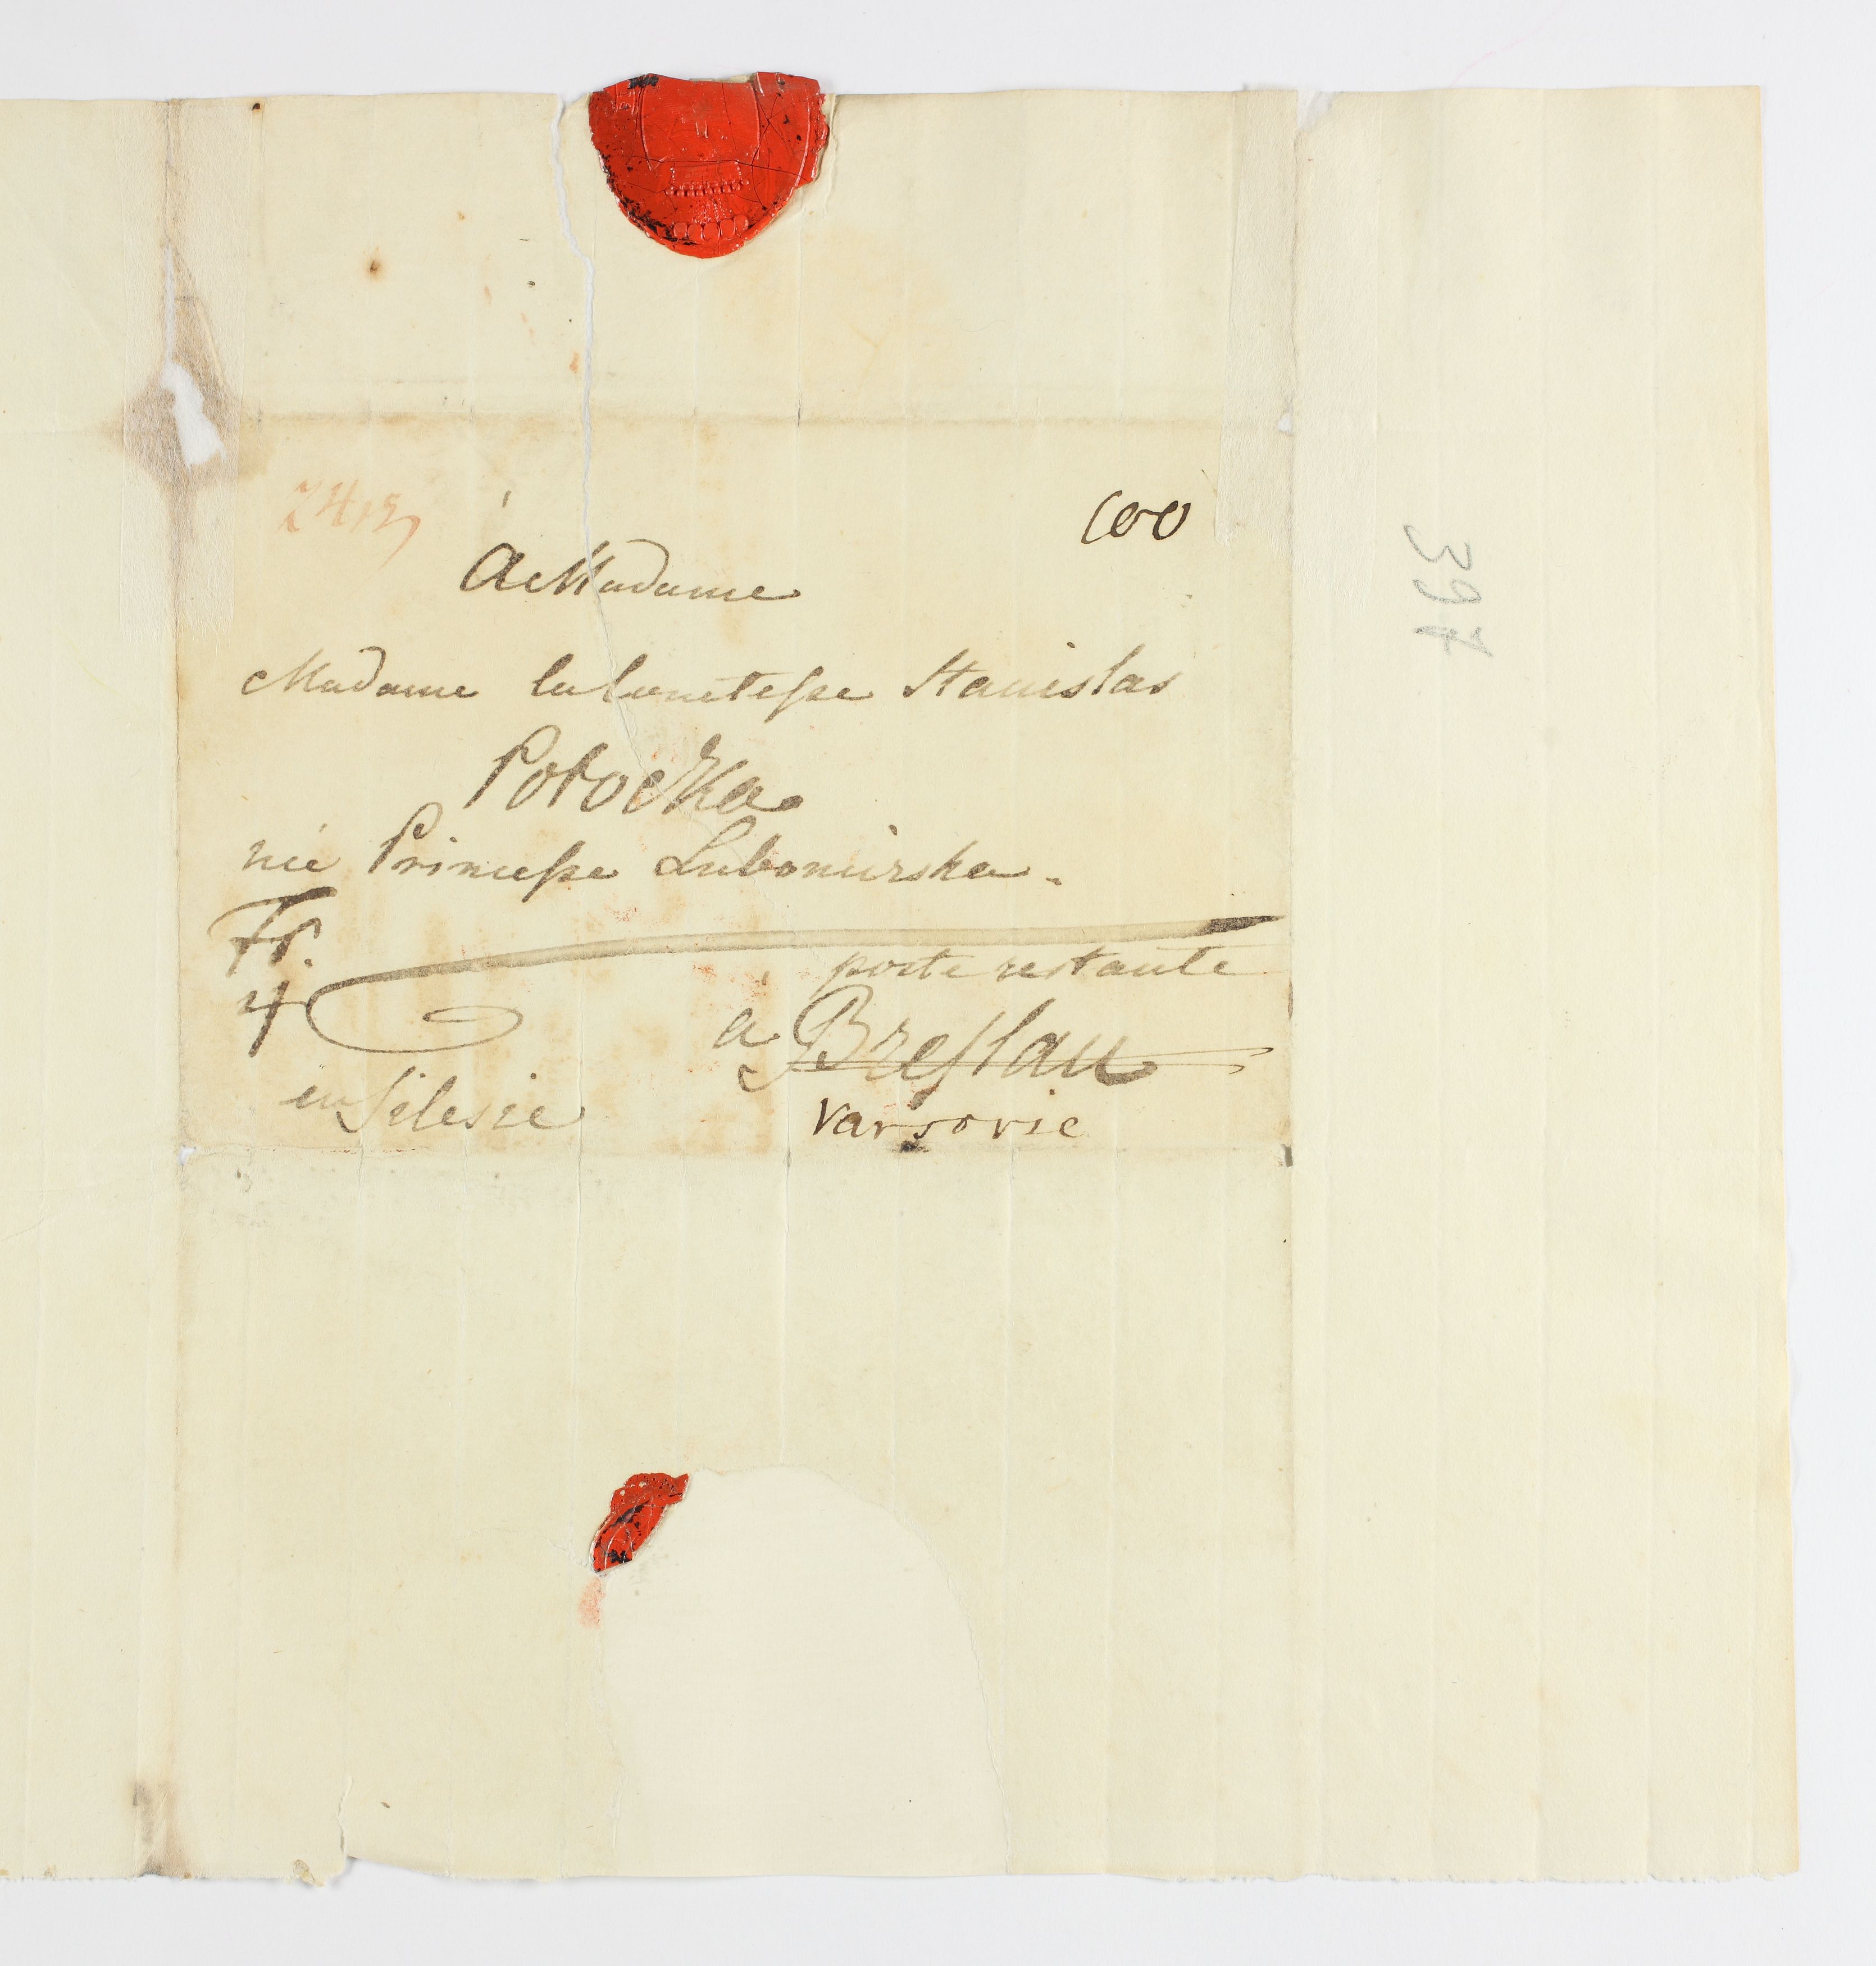 100
à Madame
Madame la Comtesse Stanislas
Potocka
née Princesse Lubomirska.
Fr.
4
poste restante
à Breslau
en Silesie
Varsovie
397